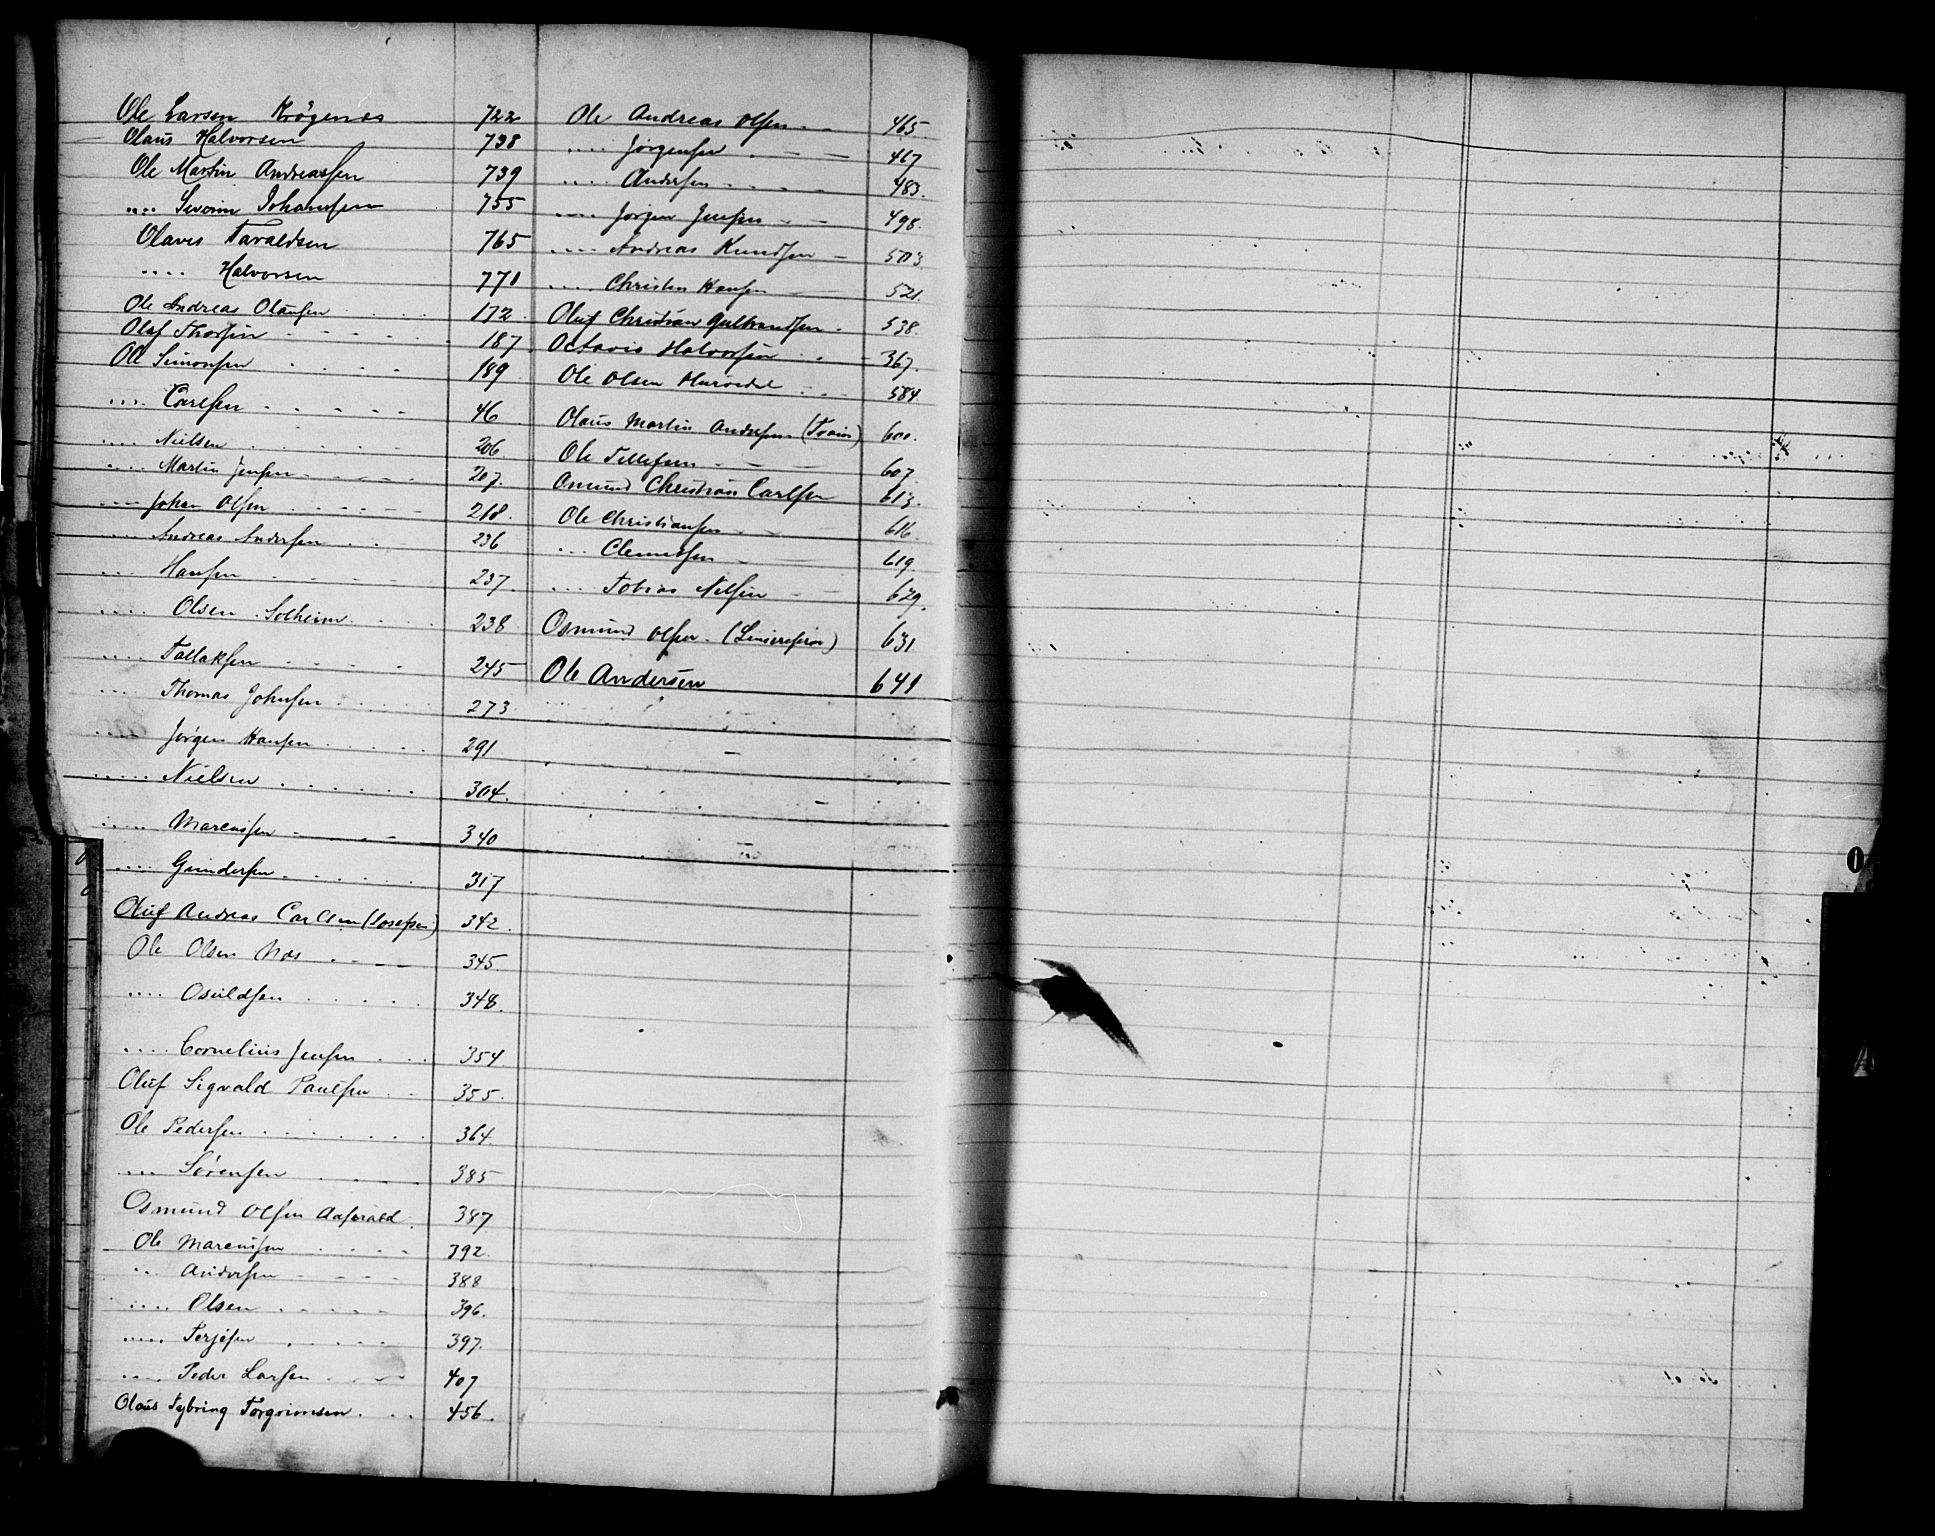 Ole Larsen Krögenes 722
Olaus Halvorsen 738
Ole Martin Andreassen 739
.... Severin Johansen 755
Olaves Taraldsen 765
.... Halvorsen 771
Ole Andreas Olausen 172
Olaf Thorsen 187
Ole Simonsen 189
.... Carlsen 46
.... Nielsen 206
.... Martin Jensen 207
.... Johan Olsen 218
.... Andreas Andersen 236
.... Hansen 237
.... Olsen Solheim 238
.... Tallaksen 245
.... Thomas Johnsen 273
.... Jørgen Hansen 291
.... Nielsen 304
.... Marcussen 340
.... Gundersen 317
Oluf Andreas Carlsen (Josefsen) 342
Ole Olsen Næs 345
.... Osuldsen 348
.... Cornelius Jensen 354
Oluf Sigvald Paulsen 355
Ole Pedersen 364
.... Sørensen 385
Osmund Olsen 387
Ole Marcussen 392
.... Andersen 388
.... Olsen 396
.... Terjesen 397
.... Peder Larsen 407
Olaus Tybring Torgrimsen 456
Ole Andreas Olsen 465
.... Jørgensen 467
.... Andersen 483
.... Jørgen Jensen 498
.... Andreas Knudsen 503
.... Christen Hansen 521
Oluf Christian Gulbrandsen 538
Octavis Halvorsen 367
Ole Olsen 584
Olaus Martin Andersen (Train) 600
Ole Tellefsen 607
Omund Christian Carlsen 613
Ole Christiansen 616
.... Clemetsen 619
.... Tobias Nilsen 629
Osmund Olsen 631
Ole Andersen 641
O
A